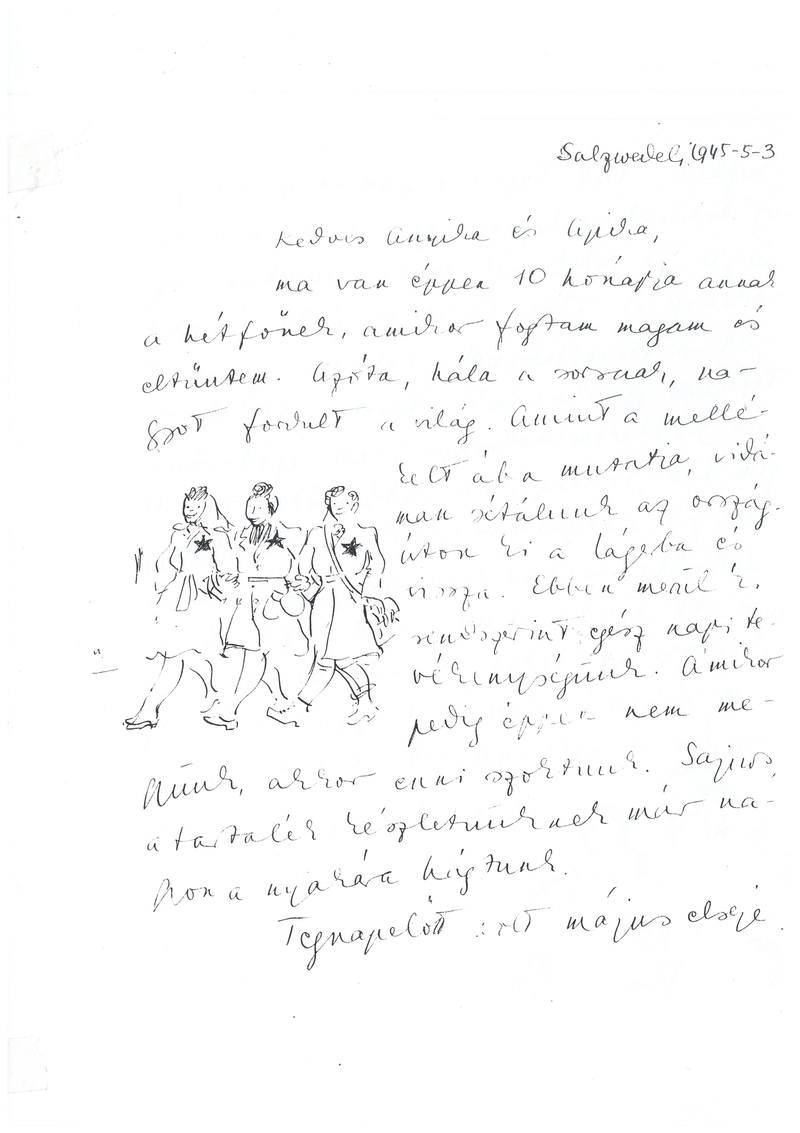 Salzwedel, 1945-5-3
Kedves Anyika és Apika,
ma van éppen 10 hónapja annak
a hétfőnek, amikor fogtam magam és
eltüntem. Azóta, hála a sorsnak, na-
gyot fordult a világ. Amint a mellé-
kelt ába mutatja, vidá-
man sétálunk az ország-
úton ki a lágerba és
vissza. Ebben merül ki
rendszerint egész napi te-
vékenységünk. Amikor
pedig éppen nem me-
gyünk, akkor enni szoktunk. Sajnos,
a tartalék készletünknek már na-
gyon a nyakára hágtunk.
Tegnapelőtt volt május elseje.